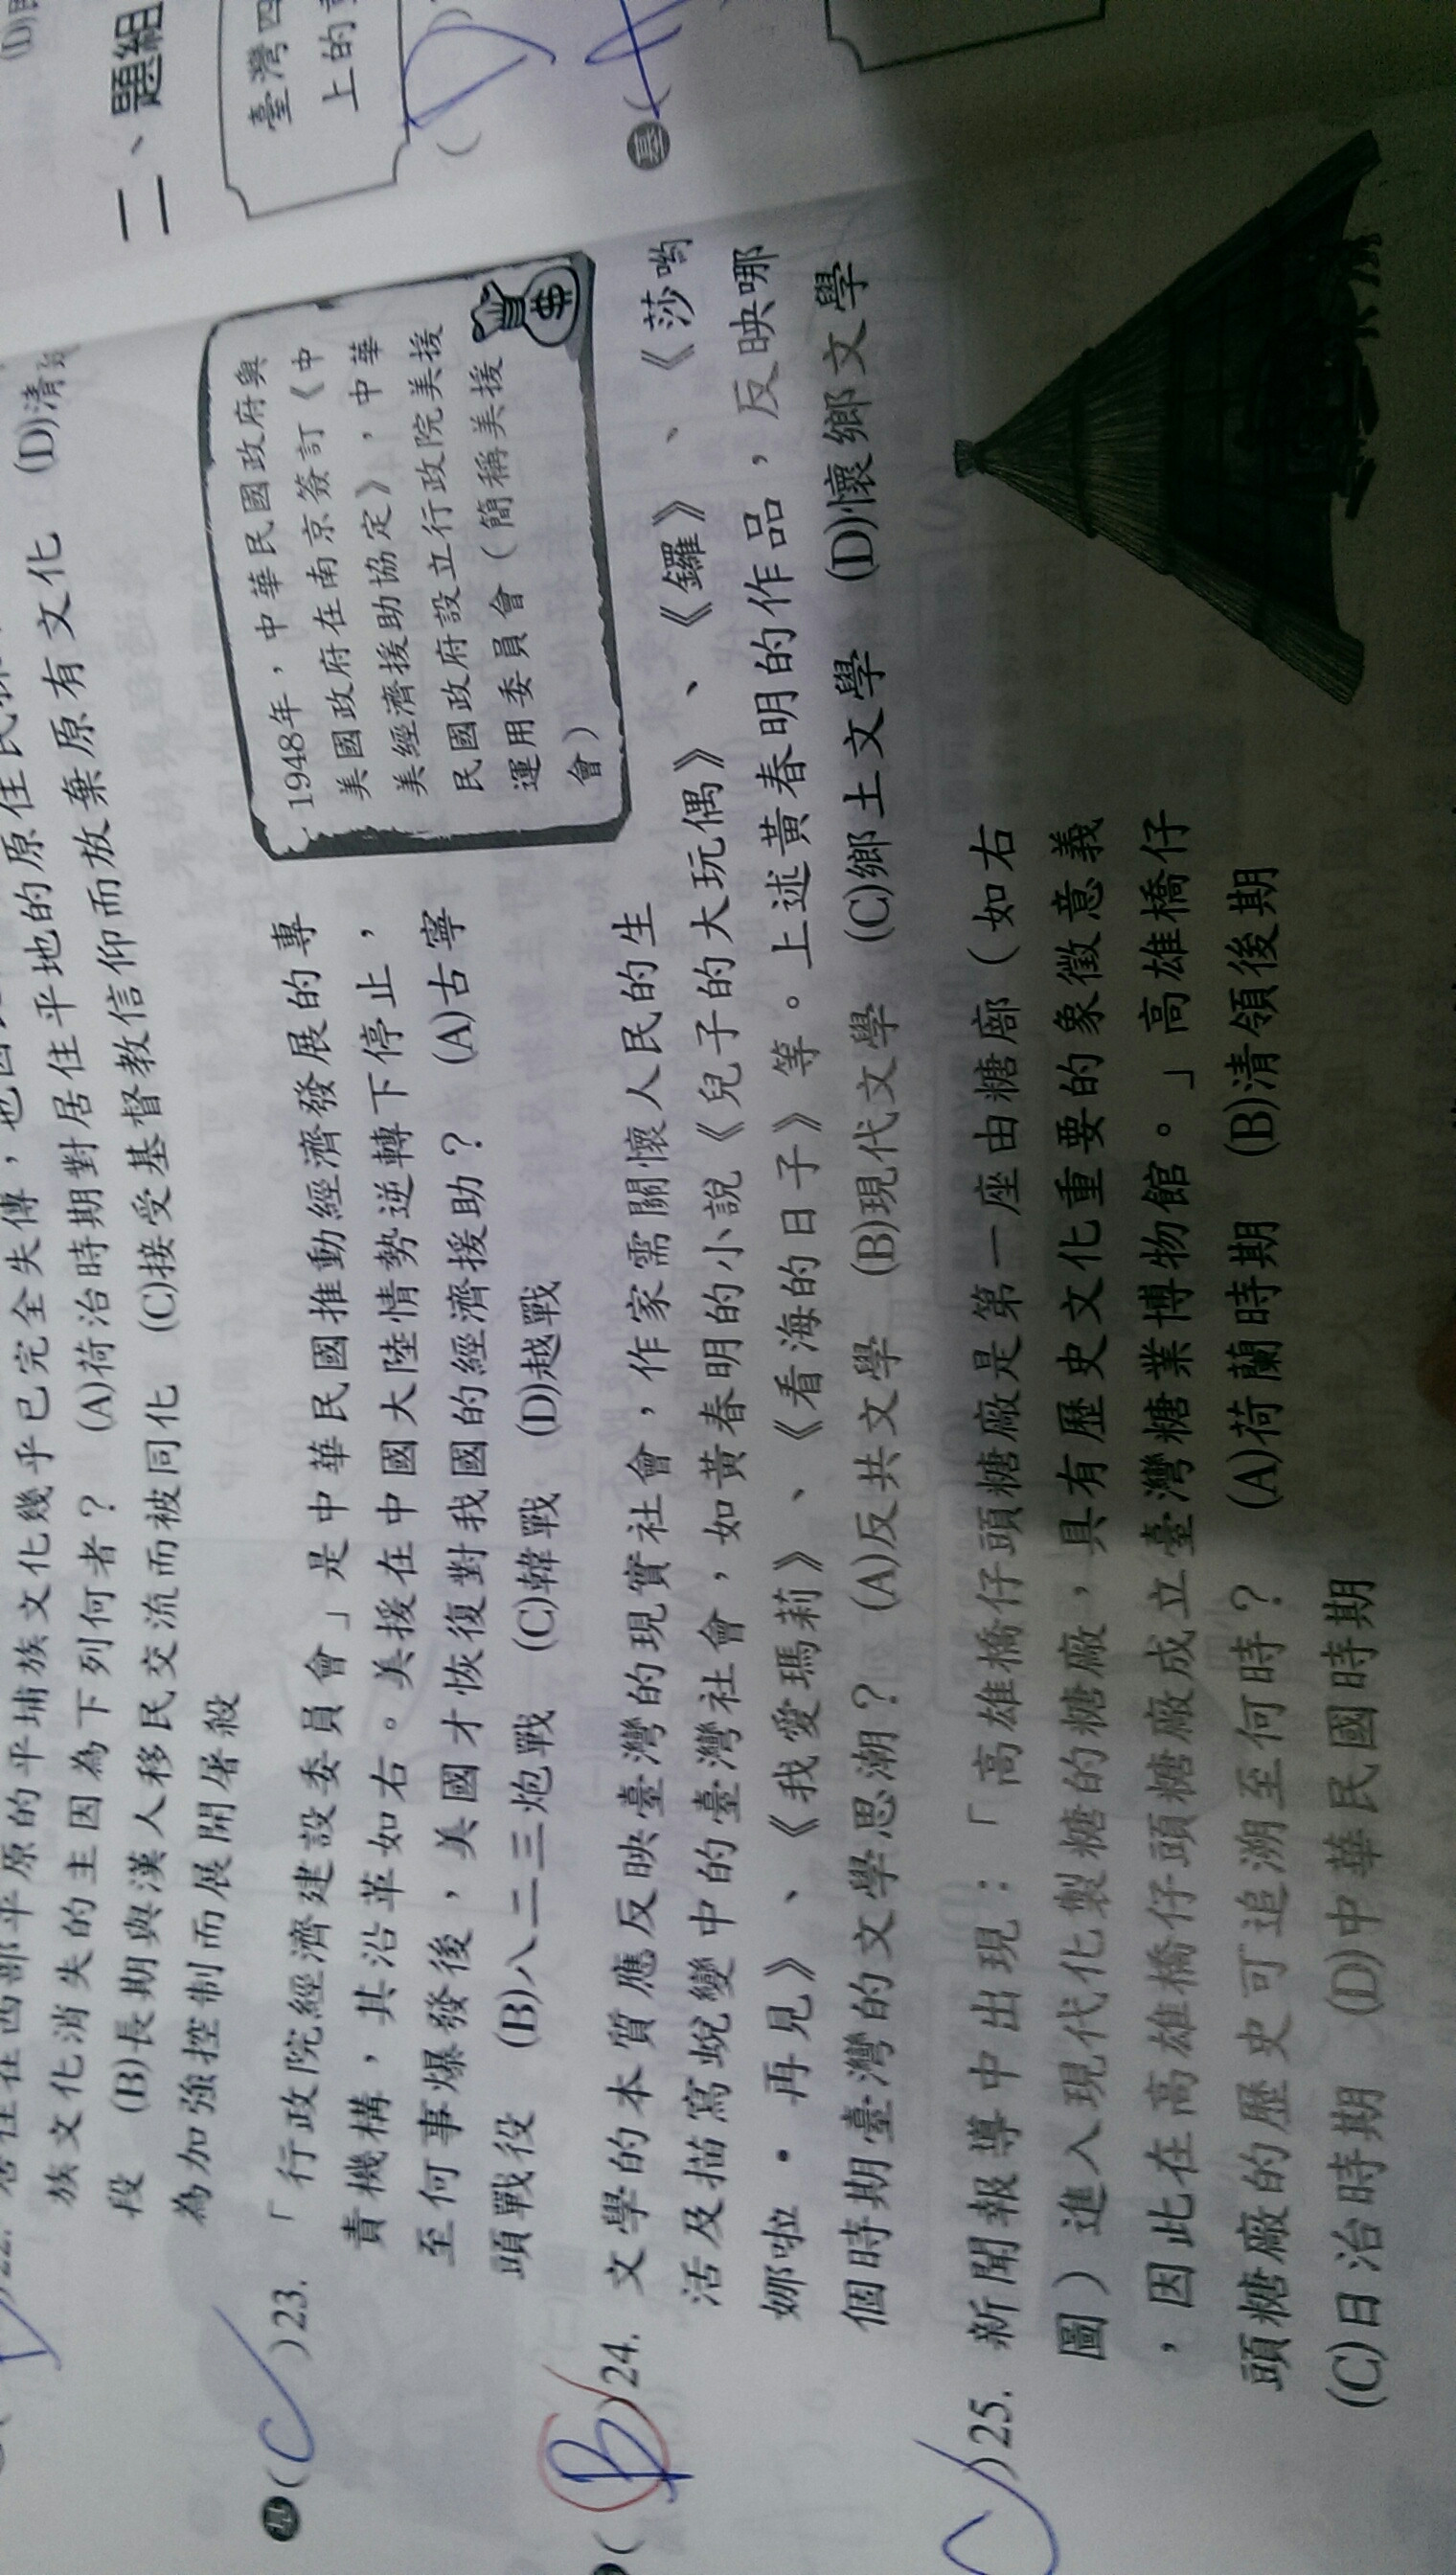 居住在西部平原的平埔族文化幾乎已完全失傳，也
族文化消失的主因為下列何者？ (A)荷治時期對居住平地的原住民採
段 (B)長期與漢人移民交流而被同化 (C)接受基督教信仰而放棄原有文化 (D)清
為加強控制而展開屠殺
(C)23. 「行政院經濟建設委員會」是中華民國推動經濟發展的專
責機構，其沿革如右。美援在中國大陸情勢逆轉下停止，
至何事爆發後，美國才恢復對我國的經濟援助？ (A)古寧
頭戰役 (B)八二三炮戰 (C)韓戰 (D)越戰
1948年，中華民國政府與
美國政府在南京簽訂《中
美經濟援助協定》，中華
民國政府設立行政院美援
運用委員會（簡稱美援
會）
$
(B)24. 文學的本質應反映臺灣的現實社會，作家需關懷人民的生
活及描寫蛻變中的臺灣社會，如黃春明的小說《兒子的大玩偶》、《鑼》、《莎喲
娜啦‧再見》、《我愛瑪莉》、《看海的日子》等。上述黃春明的作品，反映哪
個時期臺灣的文學思潮？ (A)反共文學 (B)現代文學 (C)鄉土文學 (D)懷鄉文學
)25. 新聞報導中出現：「高雄橋仔頭糖廠是第一座由糖廍（如右
圖）進入現代化製糖的糖廠，具有歷史文化重要的象徵意義
，因此在高雄橋仔頭糖廠成立臺灣糖業博物館。」高雄橋仔
頭糖廠的歷史可追溯至何時？ (A)荷蘭時期 (B)清領後期
(C)日治時期 (D)中華民國時期
二、題組
臺灣四
上的
(D)
基(